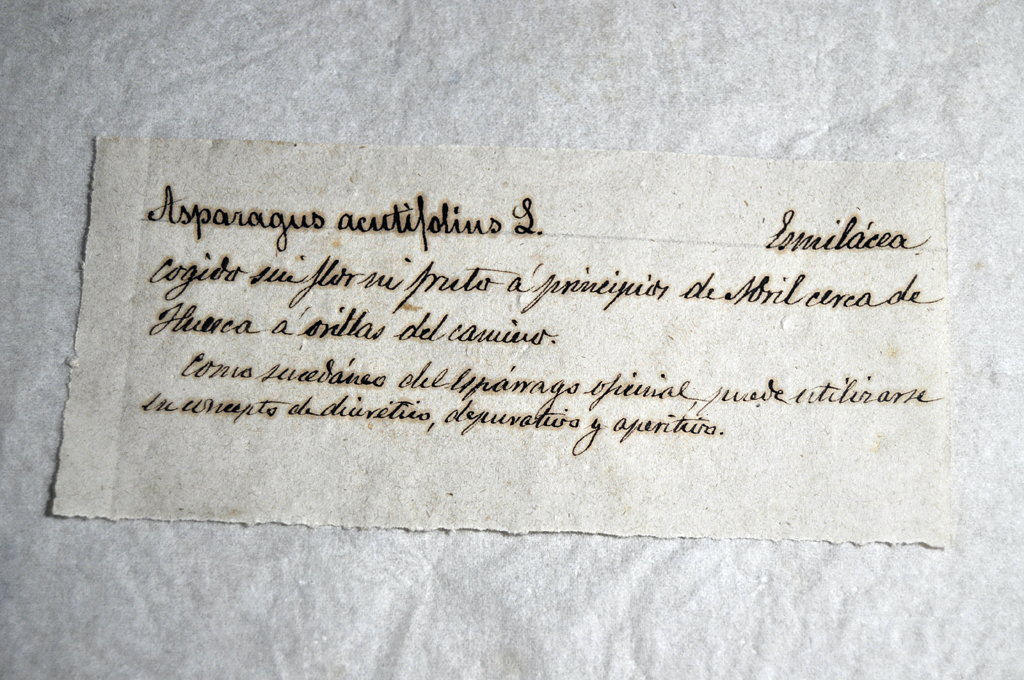 Asparagus acutifolius L. Esmilácea
cogido sin flor ni fruto á principios de Abril cerca de
Huesca á orillas del camino.
Como sucedáneo del Espárrago oficinal, puede utilizarse
en concepto de diurético, depurativo y aperitivo.